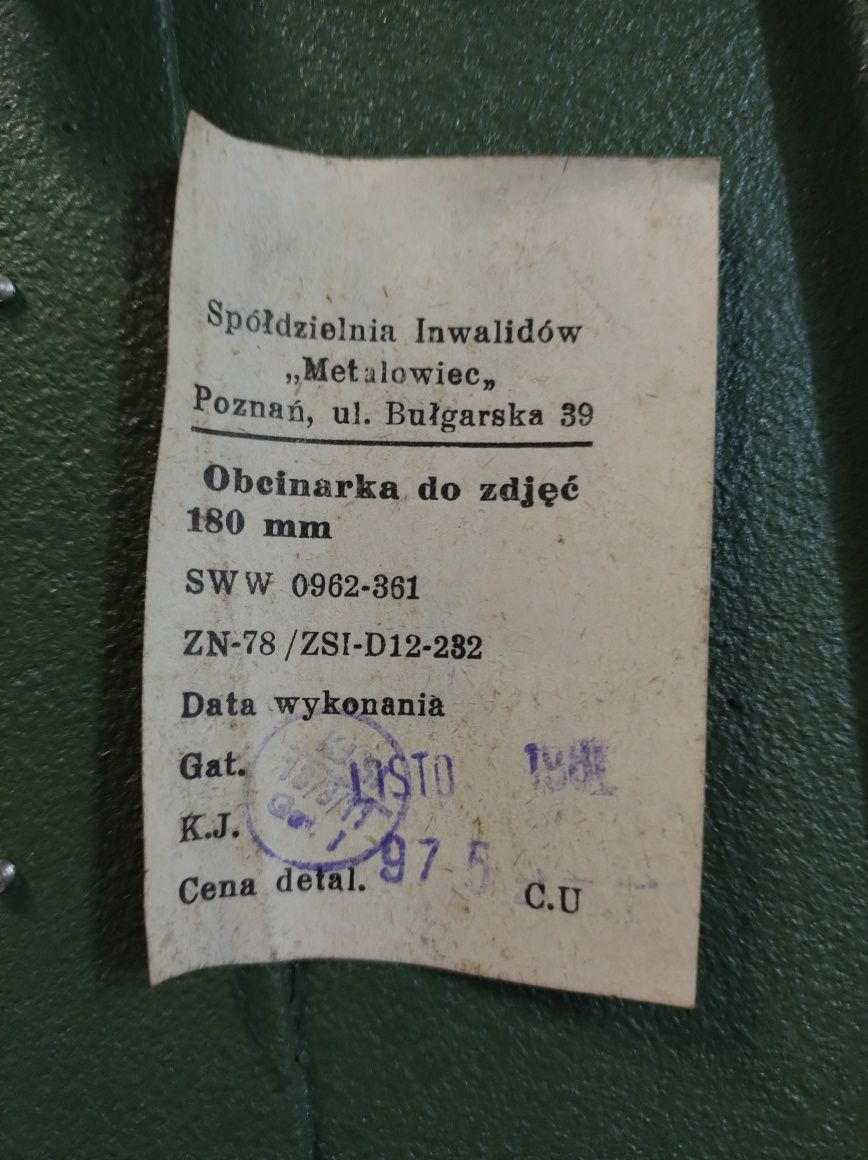 Spółdzielnia Inwalidów
„Metalowiec„
Poznań, ul. Bułgarska 39
Obcinarka do zdjęć
180 mm
SWW 0962-361
ZN-78/ZSI-D12-232
Data wykonania
Gat. LISTO
K.J.
Gat. I
Cena detal. 975 C.U